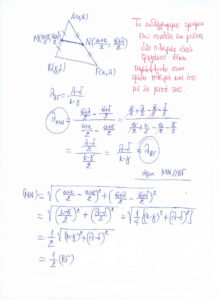 A(α,β)
M((α+γ)/2, (β+δ)/2) N((α+κ)/2, (β+λ)/2)
B(γ,δ) Γ(κ,λ)
Το ευθύγραμμο τμήμα
που ενώνει τα μέσα
δύο πλευρών ενός
τριγώνου είναι
παράλληλο στην
τρίτη και ίσο
με το μισό της.
λ_ΒΓ = (λ-δ)/(κ-γ)
λ_MN = ((β+λ)/2 - (β+δ)/2)/((α+κ)/2 - (α+γ)/2) = (β/2 + λ/2 - β/2 - δ/2)/(α/2 + κ/2 - α/2 - γ/2)
= ((λ-δ)/2)/((κ-γ)/2) = (λ-δ)/(κ-γ) = λ_ΒΓ
άρα MN//BΓ
(MN) = √(((α+κ)/2 - (α+γ)/2)² + ((β+λ)/2 - (β+δ)/2)²)
= √(((κ-γ)/2)² + ((λ-δ)/2)²) = √(1/4[(κ-γ)² + (λ-δ)²])
= 1/2 √((κ-γ)² + (λ-δ)²)
= 1/2 (BΓ)